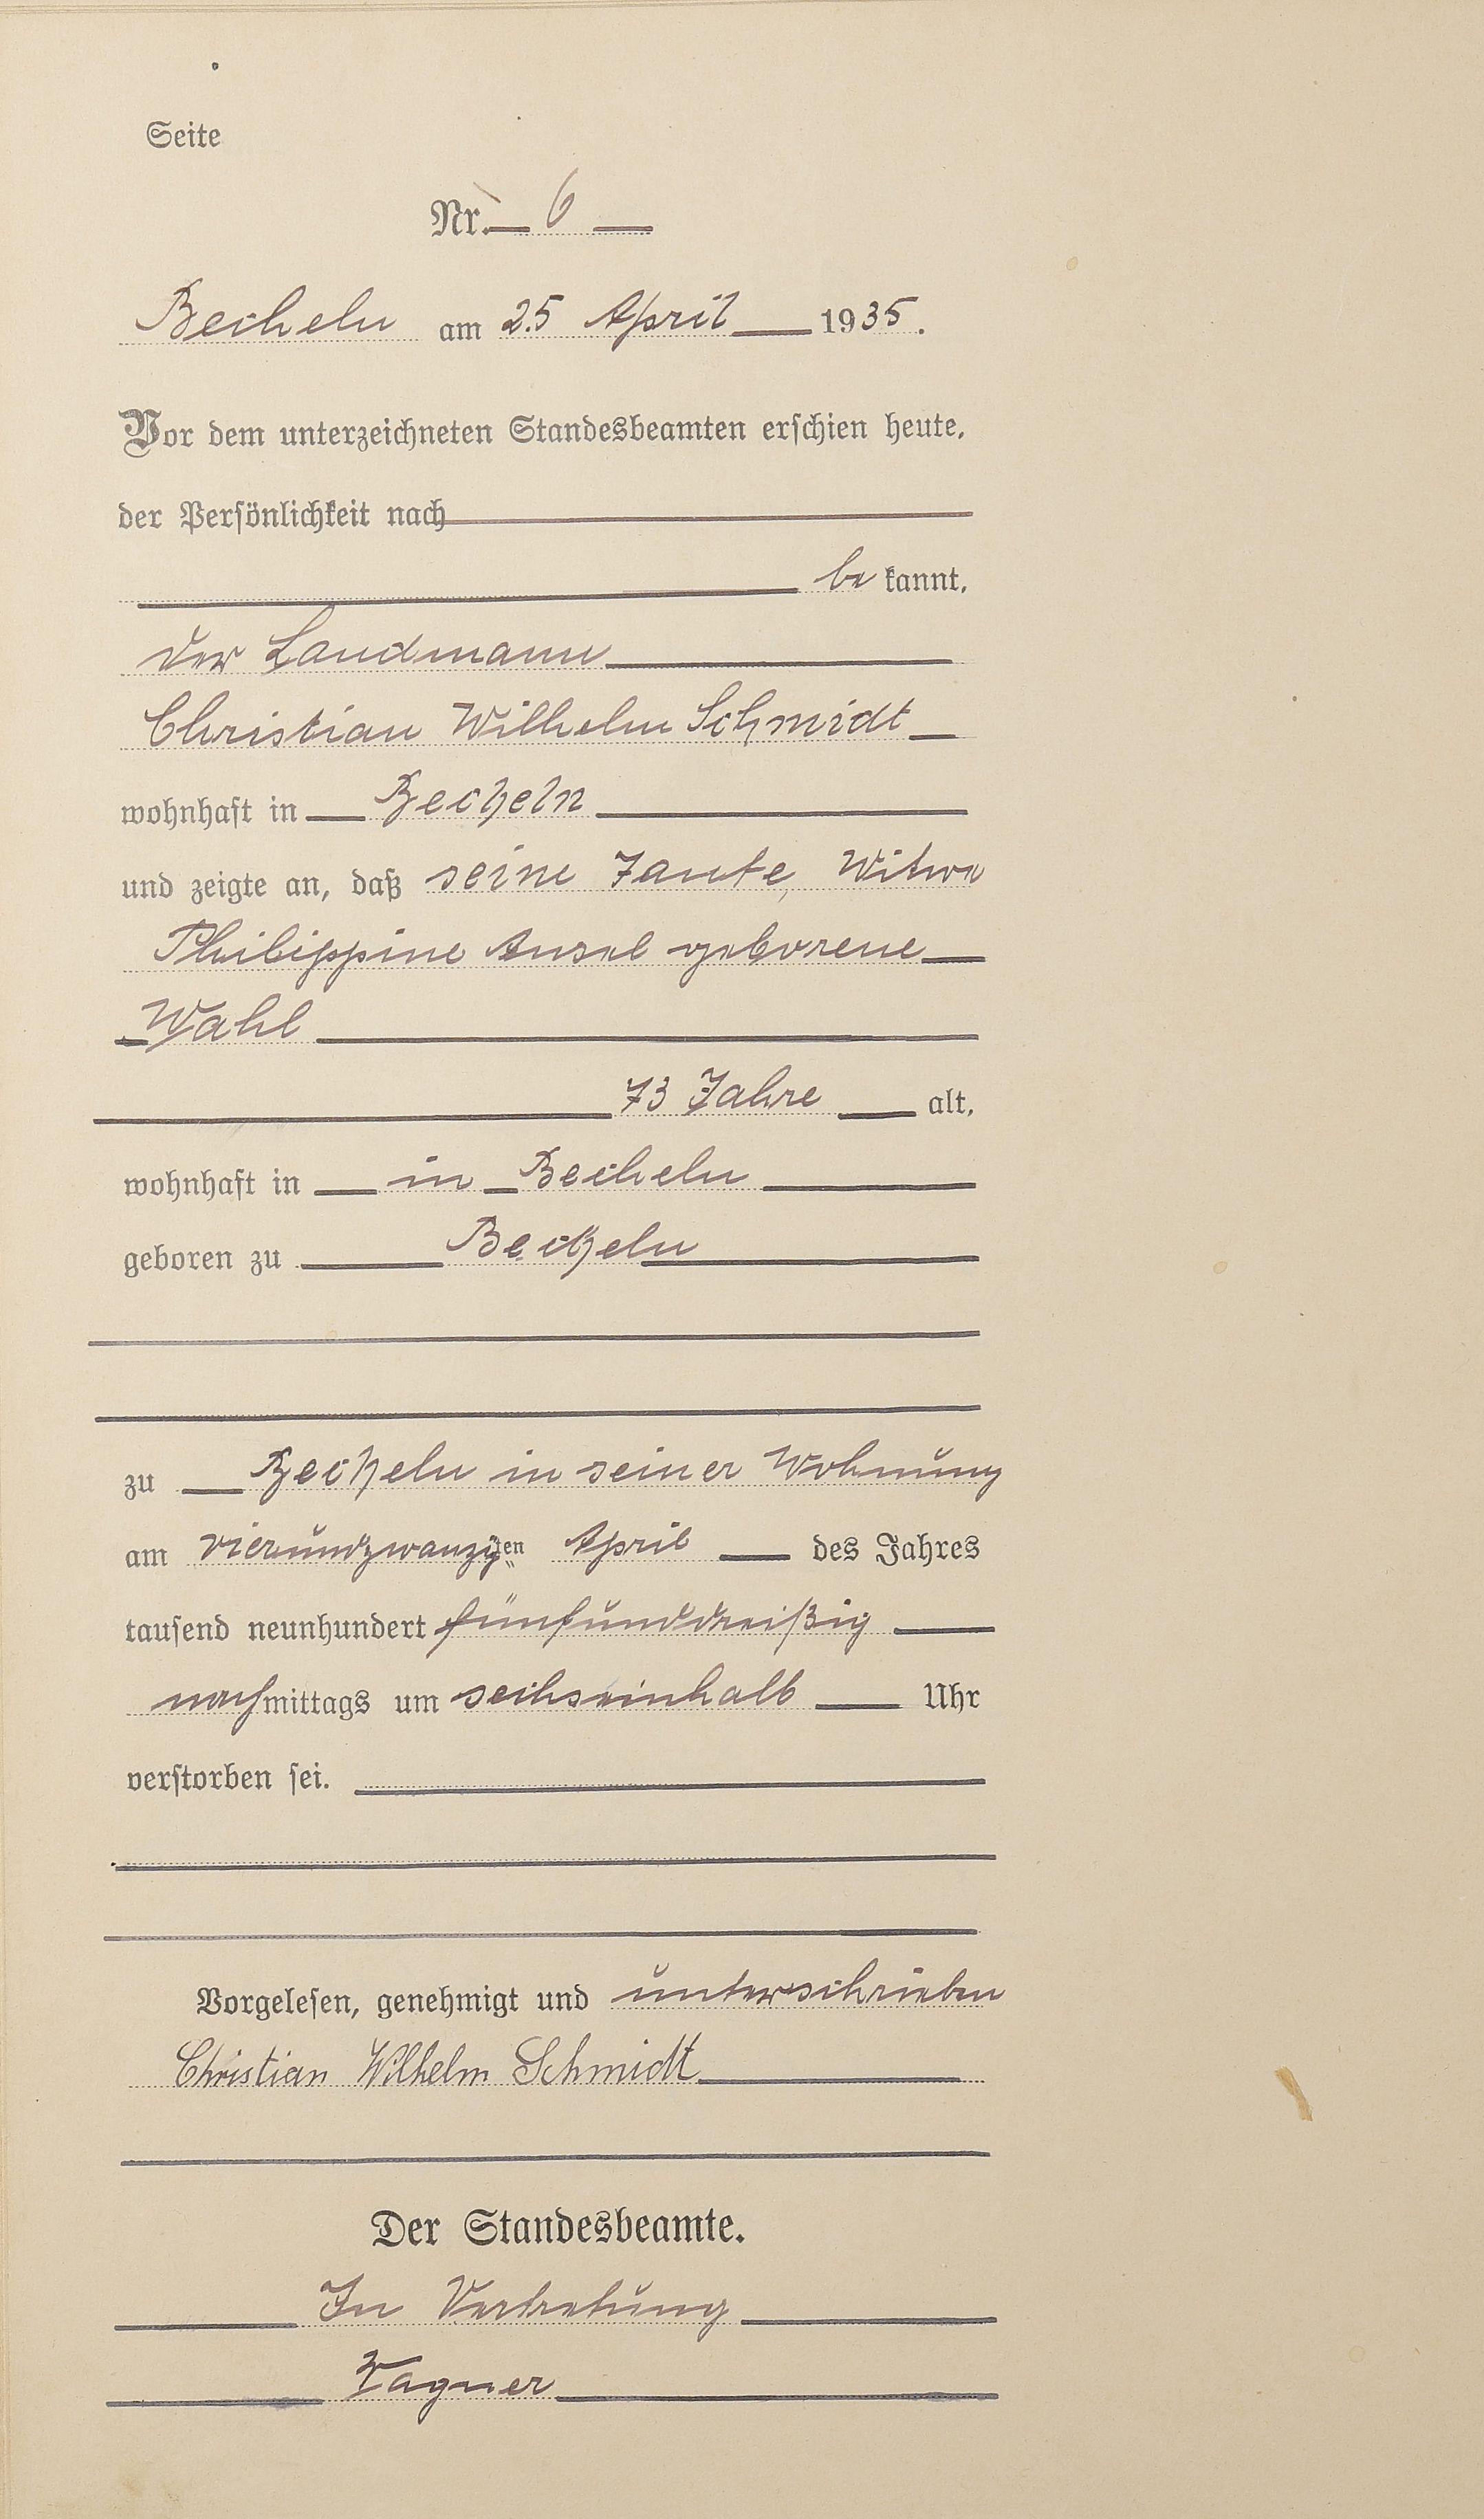 Seite
Nr. 6
Becheln am 25 April 1935.
Vor dem unterzeichneten Standesbeamten erschien heute,
der Persönlichkeit nach
be kannt,
der Landmann
Christian Wilhelm Schmidt
wohnhaft in Becheln
und zeigte an, daß seine Tante, Witwe
Philippine Ansel geborene
Wahl
73 Jahre alt,
wohnhaft in in Becheln
geboren zu Becheln
zu Becheln in seiner Wohnung
am vierundzwanzigten April des Jahres
tausend neunhundert fünfunddreißig
nachmittags um sechseinhalb Uhr
verstorben sei.
Vorgelesen, genehmigt und unterschrieben
Christian Wilhelm Schmidt
Der Standesbeamte.
In Vertretung
Wagner